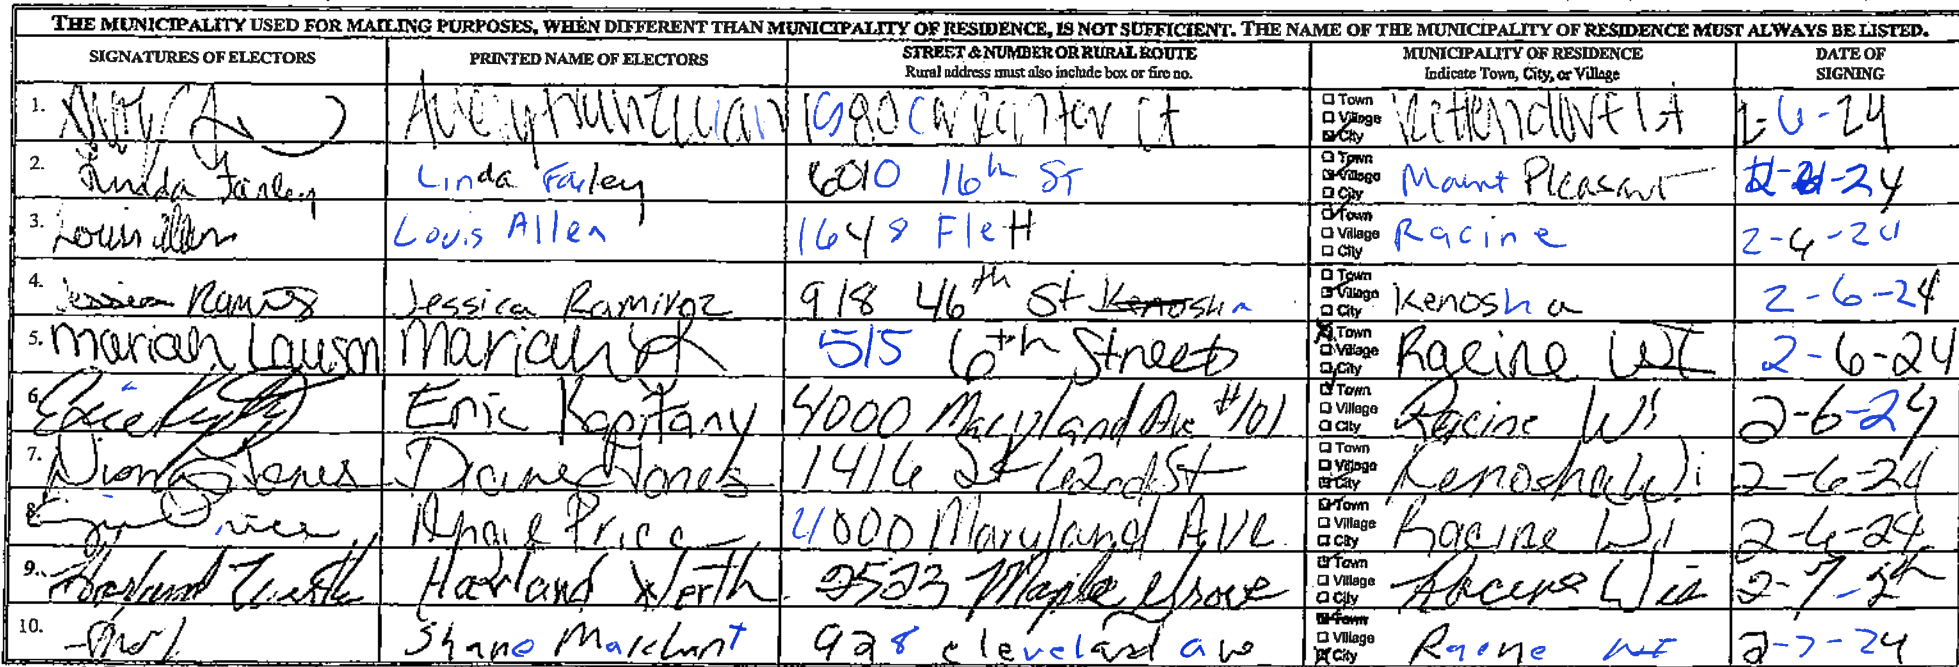 THE MUNICIPALITY USED FOR MAILING PURPOSES, WHEN DIFFERENT THAN MUNICIPALITY OF RESIDENCE, IS NOT SUFFICIENT. THE NAME OF THE MUNICIPALITY OF RESIDENCE MUST ALWAYS BE LISTED.
SIGNATURES OF ELECTORS PRINTED NAME OF ELECTORS STREET & NUMBER OR RURAL ROUTE Rural address must also include box or fire no. MUNICIPALITY OF RESIDENCE Indicate Town, City, or Village DATE OF SIGNING
1. Avery Town Village City 2-6-24
2. Linda Farley Linda Farley 6010 16th ST Town Village City Mount Pleasant -24
3. Louis Allen Louis Allen 1648 Flett Town Village City Racine 2-6-24
4. Jessica Ramirez Jessica Ramiroz 918 46th St Kenosha Town Village City Kenosha 2-6-24
5. Mariah Lawson Mariah 515 6th Street Town Village City Racine WI 2-6-24
6. Eric Kapitany 4000 Maryland Ave #101 Town Village City Racine WI 2-6-24
7. Diane Jones Diane Jones 1416 62nd St Town Village City Kenosha Wi 2-6-24
8. Price Price 4000 Maryland AVE Town Village City Racine Wi 2-6-24
9. Harland Werth Harland Werth 2523 Maple Grove Town Village City Racine Wis 2-7-24
10. Shane Marchant 928 cleveland av Town Village City Racine WI 2-7-24